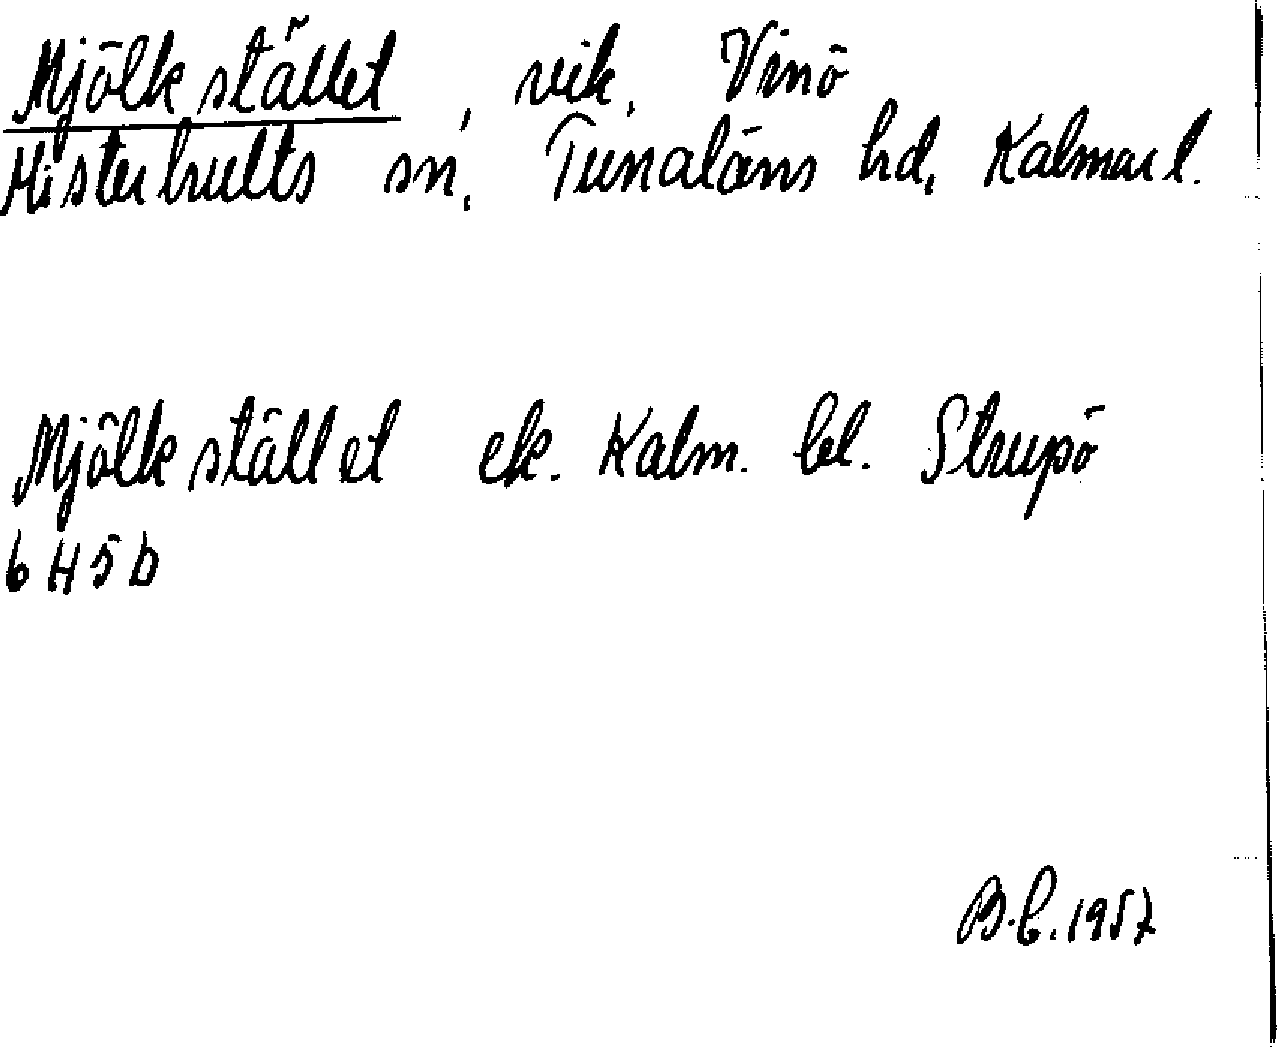 Mjölkstället, vik, Vinö
Misterhults sn, Tunaläns hd, Kalmar l.
Mjölkstället ek. Kalm. bl. Strupö
6H5b
B.C. 1957